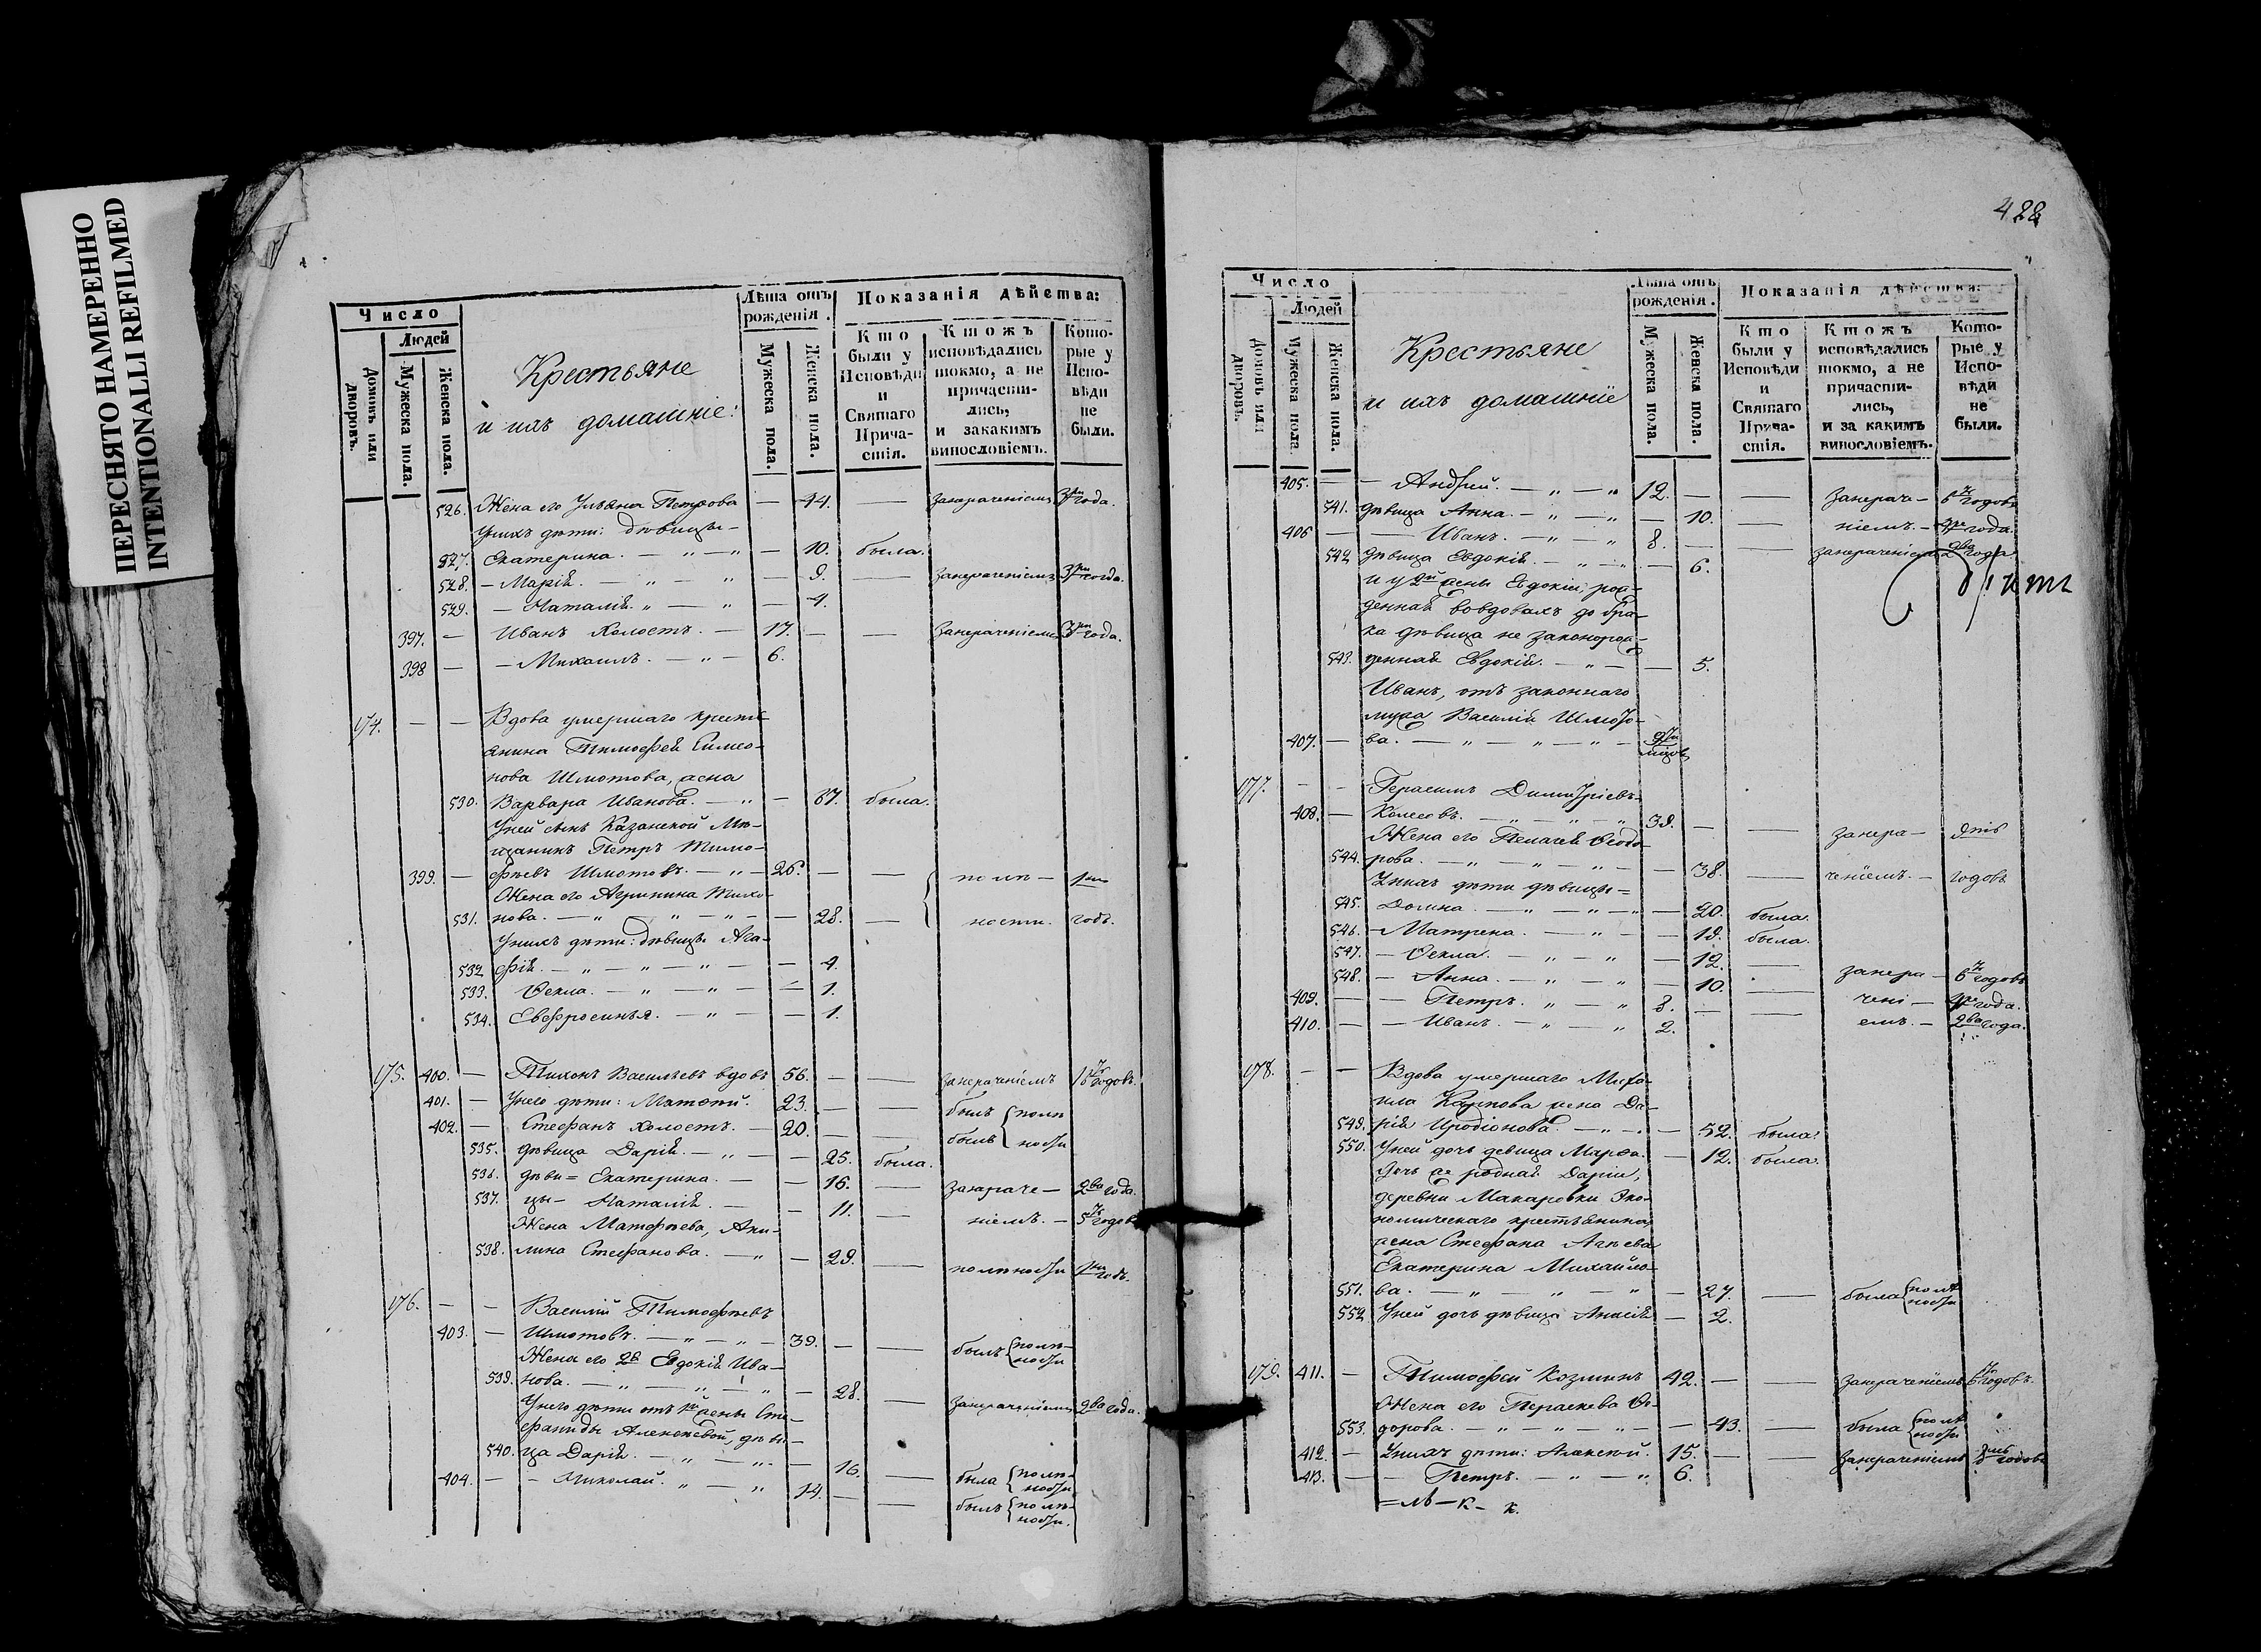 ПЕРЕСНЯТО НАМЕРЕННО
INTENTIONALLI REFILMED
Число
Людей
Домовъ или дворовъ.
Мужеска пола.
Женска пола.
Крестьяне
и ихъ домашніе:
Лѣта отъ рожденія.
Мужеска пола.
Женска пола.
Показанія дѣйства:
Кто были у Исповѣди и Святаго Причастія.
Ктожъ исповѣдались токмо, а не причастились, и закакимъ винословіемъ.
Которые у Исповѣди не были.
526. Жена его Ульяна Петрова — 44. — занераченіемъ 3ри года.
Унихъ дѣти: дѣвицы —
527. Екатерина. — " — " — 10. была.
528. — Марія. — " — " — 9. — занераченіемъ 3ри года.
529. — Наталія. " — " — 4.
397. — Иванъ холостъ. — 17. — — занераченіемъ 3ри года.
398 — — Михаилъ. — " — 6.
174. — — Вдова умершаго кресть-
янина Тимофея Симео-
нова Шмотова, жена
530. Варвара Иванова. — " — 67. была.
Уней сынъ Казанской Мѣ-
щанинъ Петръ Тимо-
399. — фѣевъ Шмотовъ. — " — 26. — — полѣ — 1нъ
Жена его Агрипина Тихо-
531. нова. — " " — " — — 28. — ности. годъ.
Унихъ дѣти: дѣвицы Ага-
532 фія. — " — " — " — — 4.
533. Ѳекла. — " — " — — 1.
534. Евфросинья. — " — — 1.
175. 400. — Тихонъ Васильевъ вдовъ 56. — — занераченіемъ 16 годовъ.
401. — Унего дѣти: Матвей. 23. — — былъ { полѣ
402. — Стефанъ холостъ. — 20. — — былъ ности
535. дѣвица Дарія. — " — — 25. была.
536. дѣви= Екатерина. — — 16. — занераче — 2ва года.
537. цы — Наталія. — — 11. — ніемъ. — 5 годовъ
Жена Матфѣева, Аки-
538. лина Стефанова. — " — 29. — полѣности 1нъ годъ.
176. — — Василій Тимофѣевъ
403. — Шмотовъ. — " — " — 39. — — былъ { полѣ-ности
Жена его 2я Евдокія Ива-
539. нова. — " — " — " — 28. — занераченіемъ 2ва года.
Унего дѣти отъ 1й жены Сте-
фаниды Алексѣевой, дѣви-
540. ца Дарія. — " — " — — 16. — была { полѣ-ности
404. — — Николай. " — " 14. — — былъ { полѣ-ности.
422
Число
Людей
Домовъ или дворовъ.
Мужеска пола
Женска пола.
Крестьяне
и ихъ домашніе
Лѣта отъ рожденія.
Мужеска пола.
Женска пола.
Показанія дѣйства:
Кто были у Исповѣди и Святаго Причастія.
Ктожъ исповѣдались токмо, а не причастились, и за какимъ винословіемъ.
Которые у Исповѣди не были.
405. — — Андрей. — " — " 12. — — занерача — 6 годовъ
541. дѣвица Анна. — " — " — 10. — ніемъ. — 4ре года.
406 — — Иванъ. — " — " 8. — — занераченіемъ 2ва года
542 дѣвица Евдокія. — " — " — 6.
и у 2й жены Евдокіи, рож-
денная вовдовахъ до бра-
ка дѣвица не законорож-
543. денная Евдокія. — " — — 5.
Иванъ, отъ законнаго
мужа Василія Шмото-
407. — ва. — " — " — " — 9ти мѣцовъ
177. — — Герасимъ Димитріевъ
408. — Колесовъ. — " — " — " 39. — — занера — 9ть
Жена его Пелагея Ѳеодо-
544. рова. — " — " — " — 38. — ченіемъ. — годовъ
Унихъ дѣти дѣвицы =
545. Домна. — " — " — " — 20. была
546. — Матрена. — " — — 19. была.
547. — Ѳекла. — " — " — 12. —
548. — Анна. — " — " — 10. — занера — 6 годовъ
409. — — Петръ. " — " 8. — — чені — 4ре года.
410. — — Иванъ. — " — " 2. емъ. — 2ва года.
178. — — Вдова умершаго Миха-
ила Карпова жена Да-
549. рія Иродіонова. — " — — 52. была.
550. Уней дочь девица Марѳа. — 12. была.
Дочь ее родная Даріи,
деревни Макаровки Эко-
номическаго крестьянина
жена Стефана Агѣева
Екатерина Михайло-
551. ва. — " — " — " — 27. — была { полѣ ности
552 Уней дочь дѣвица Анисія — 2.
179. 411. — Тимофей Козминъ 42. — — занераченіемъ 6 годовъ.
Жена его Параскева Ѳе-
553. дорова. — " — " — " — 43. — была { полѣ ности
412. — Унихъ дѣти: Алексей. 15. — — занераченіемъ 8мь годовъ
413. — — Петръ. — " — " 6.